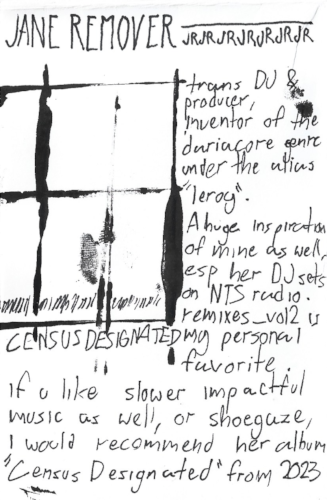 JANE REMOVER JRJRJRJRJRJRJR
trans DJ &
producer,
inventor of the
dariacore genre
under the alias
"leroy".
A huge inspiration
of mine as well,
esp her DJ sets
on NTS radio.
remixes_vol2 is
my personal
favorite.
CENSUS DESIGNATED
If u like slower impactful
music as well, or shoegaze,
I would recommend her album
"Census Designated" from 2023